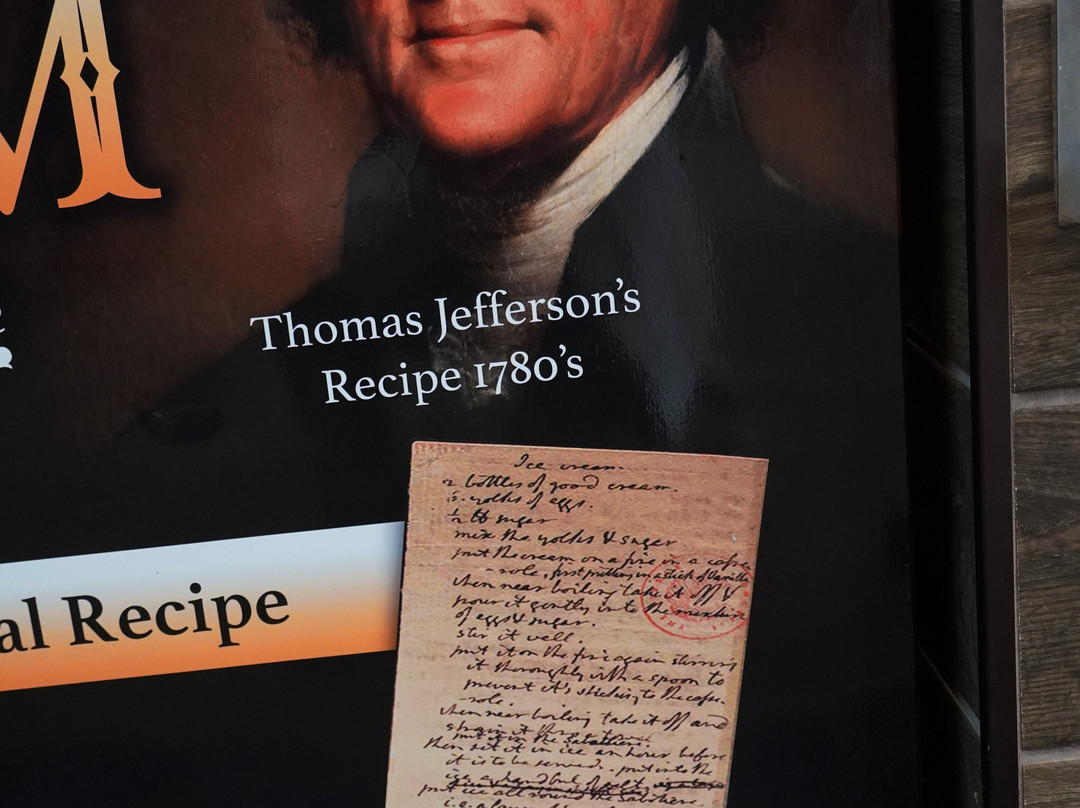 M
Thomas Jefferson's
Recipe 1780's
al Recipe
Ice cream.
2 bottles of good cream.
6. yolks of eggs.
½ ℔ sugar
mix the yolks & sugar
put the cream on a fire in a casse-
-role, first putting in a stick of Vanilla
when near boiling take it off &
pour it gently into the mixture
of eggs & sugar.
stir it well.
put it on the fire again stirring
it thoroughly with a spoon to
prevent it's sticking to the casse-
-role.
when near boiling take it off and
strain it thro' a towel.
put it in the Sabottiere.
then set it in ice an hour before
it is to be served. put into the
ice a handful of salt.
put ice all round the Sabottiere